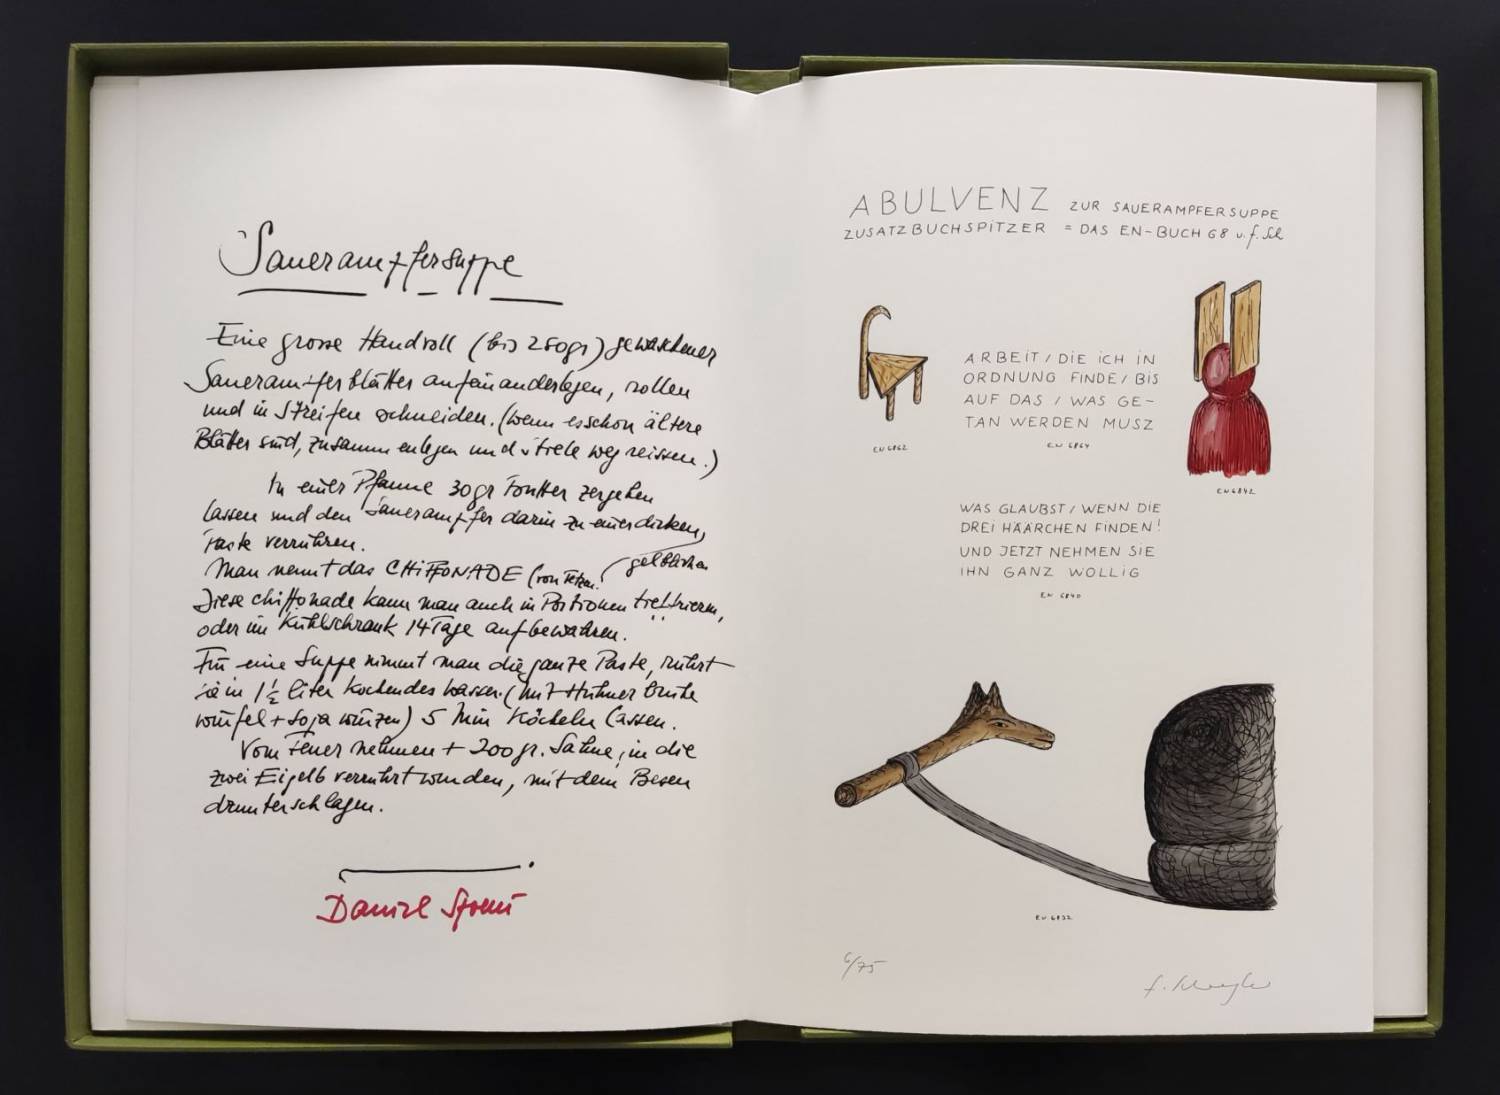 Sauerampfersuppe
Eine grosse Handvoll (bis 250gr) gewaschener
Sauerampferblätter aufeinanderlegen, rollen
und in Streifen schneiden. (wenn es schon ältere
Blätter sind, zusammenlegen und stiele weg reissen.)
In einer Pfanne 30gr Butter zergehen
lassen und den Sauerampfer darin zu einer dicken,
gelblichen
Paste verrühren.
Man nennt das CHIFFONADE (von Fetzen.
Diese chiffonade kann man auch in Portionen
oder im Kühlschrank 14 Tage aufbewahren.
Für eine Suppe nimmt man die ganze Paste, rührt
sie in 1½ liter kochendes wasser. (mit Hühner brühe
würfel + Soja würzen) 5 Min köcheln lassen.
Vom Feuer nehmen + 200gr. Sahne, in die
zwei Eigelb verrührt wurden, mit dem Besen
drunterschlagen.
Daniel Spoerri
ABULVENZ ZUR SAUERAMPFERSUPPE
ZUSATZBUCHSPITZER = DAS EN-BUCH 68 u. f. Sch
ARBEIT / DIE ICH IN
ORDNUNG FINDE / BIS
AUF DAS / WAS GE-
TAN WERDEN MUSZ
EN 6862
EN 6864
EN 6842
WAS GLAUBST / WENN DIE
DREI HÄÄRCHEN FINDEN!
UND JETZT NEHMEN SIE
IHN GANZ WOLLIG
EN 6840
EN 6832
6/75